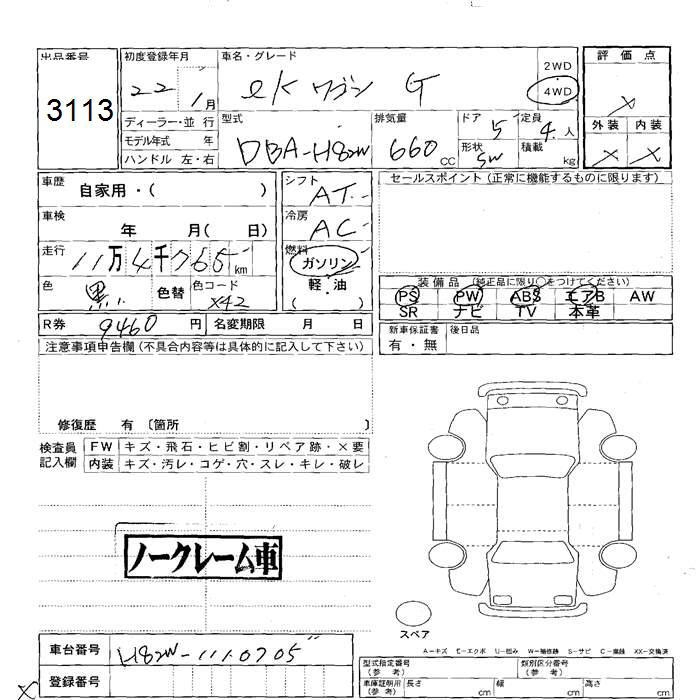 出品番号
3113
初度登録年月
22 1月
ディーラー・並行
モデル年式 年
ハンドル 左・右
車名・グレード
ek ワゴン G
2WD
4WD
型式
DBA-H82W
排気量
660 CC
ドア
5
形状
SW
定員
4 人
積載
kg
評価点
×
外装 内装
× ×
車歴
自家用・( )
車検
年 月( 日)
走行
11万4千765 km
色
黒
色替
色コード
X42
シフト
AT
冷房
AC
燃料
ガソリン
軽・油
( )
セールスポイント(正常に機能するものに限ります)
装備品(純正品に限り○をつけてください)
PS PW ABS エアB AW
SR ナビ TV 本革
新車保証書
有・無
後日品
R券 9460 円 名変期限 月 日
注意事項申告欄(不具合内容等は具体的に記入して下さい)
修復歴 有 〔箇所 〕
検査員
記入欄
FW キズ・飛石・ヒビ割・リペア跡・×要
内装 キズ・汚レ・コゲ・穴・スレ・キレ・破レ
ノークレーム車
スペア
A-キズ E-エクボ U-凹み W-補修跡 S-サビ C-腐蝕 XX-交換済
車台番号 H82W-1110705
登録番号
型式指定番号
(参考)
類別区分番号
(参考)
車庫証明用
(参考)
長さ cm 幅 cm 高さ cm